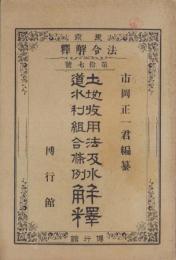 法令解釋
第拾七號
市岡正一君編纂
土地收用法及水
道水利組合條例解釋
博行館